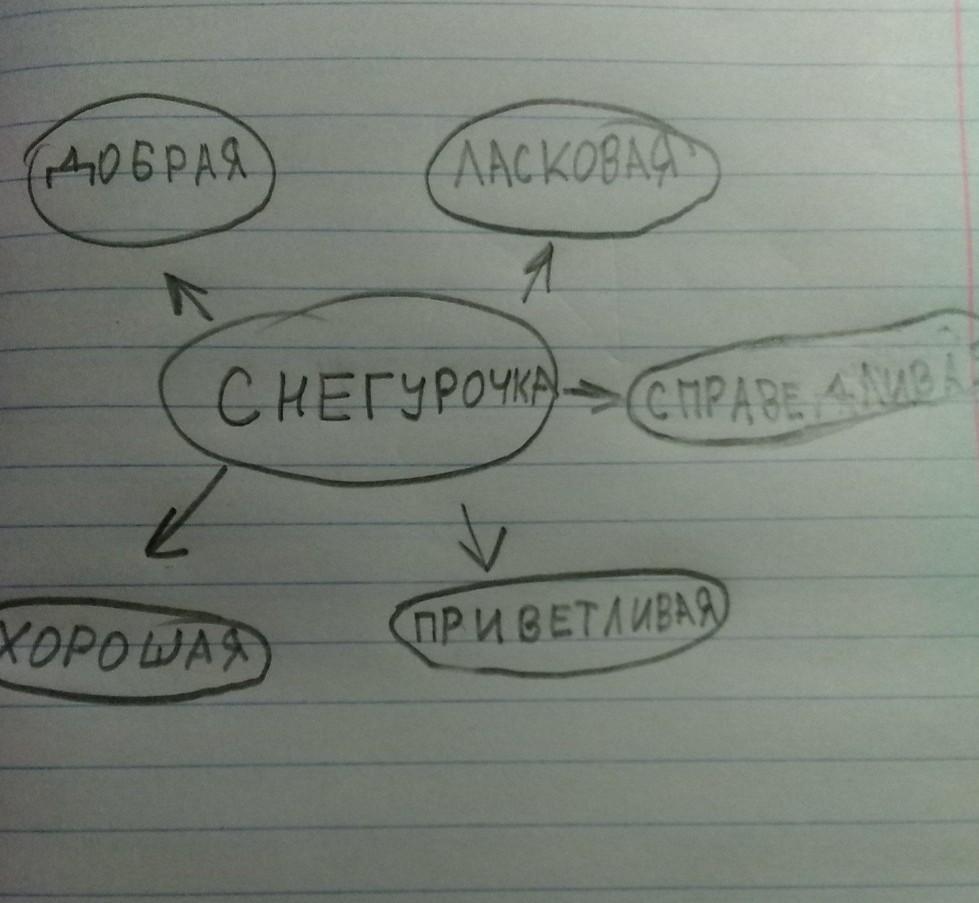 ДОБРАЯ
ЛАСКОВАЯ
СНЕГУРОЧКА
СПРАВЕДЛИВА
ХОРОШАЯ
ПРИВЕТЛИВАЯ